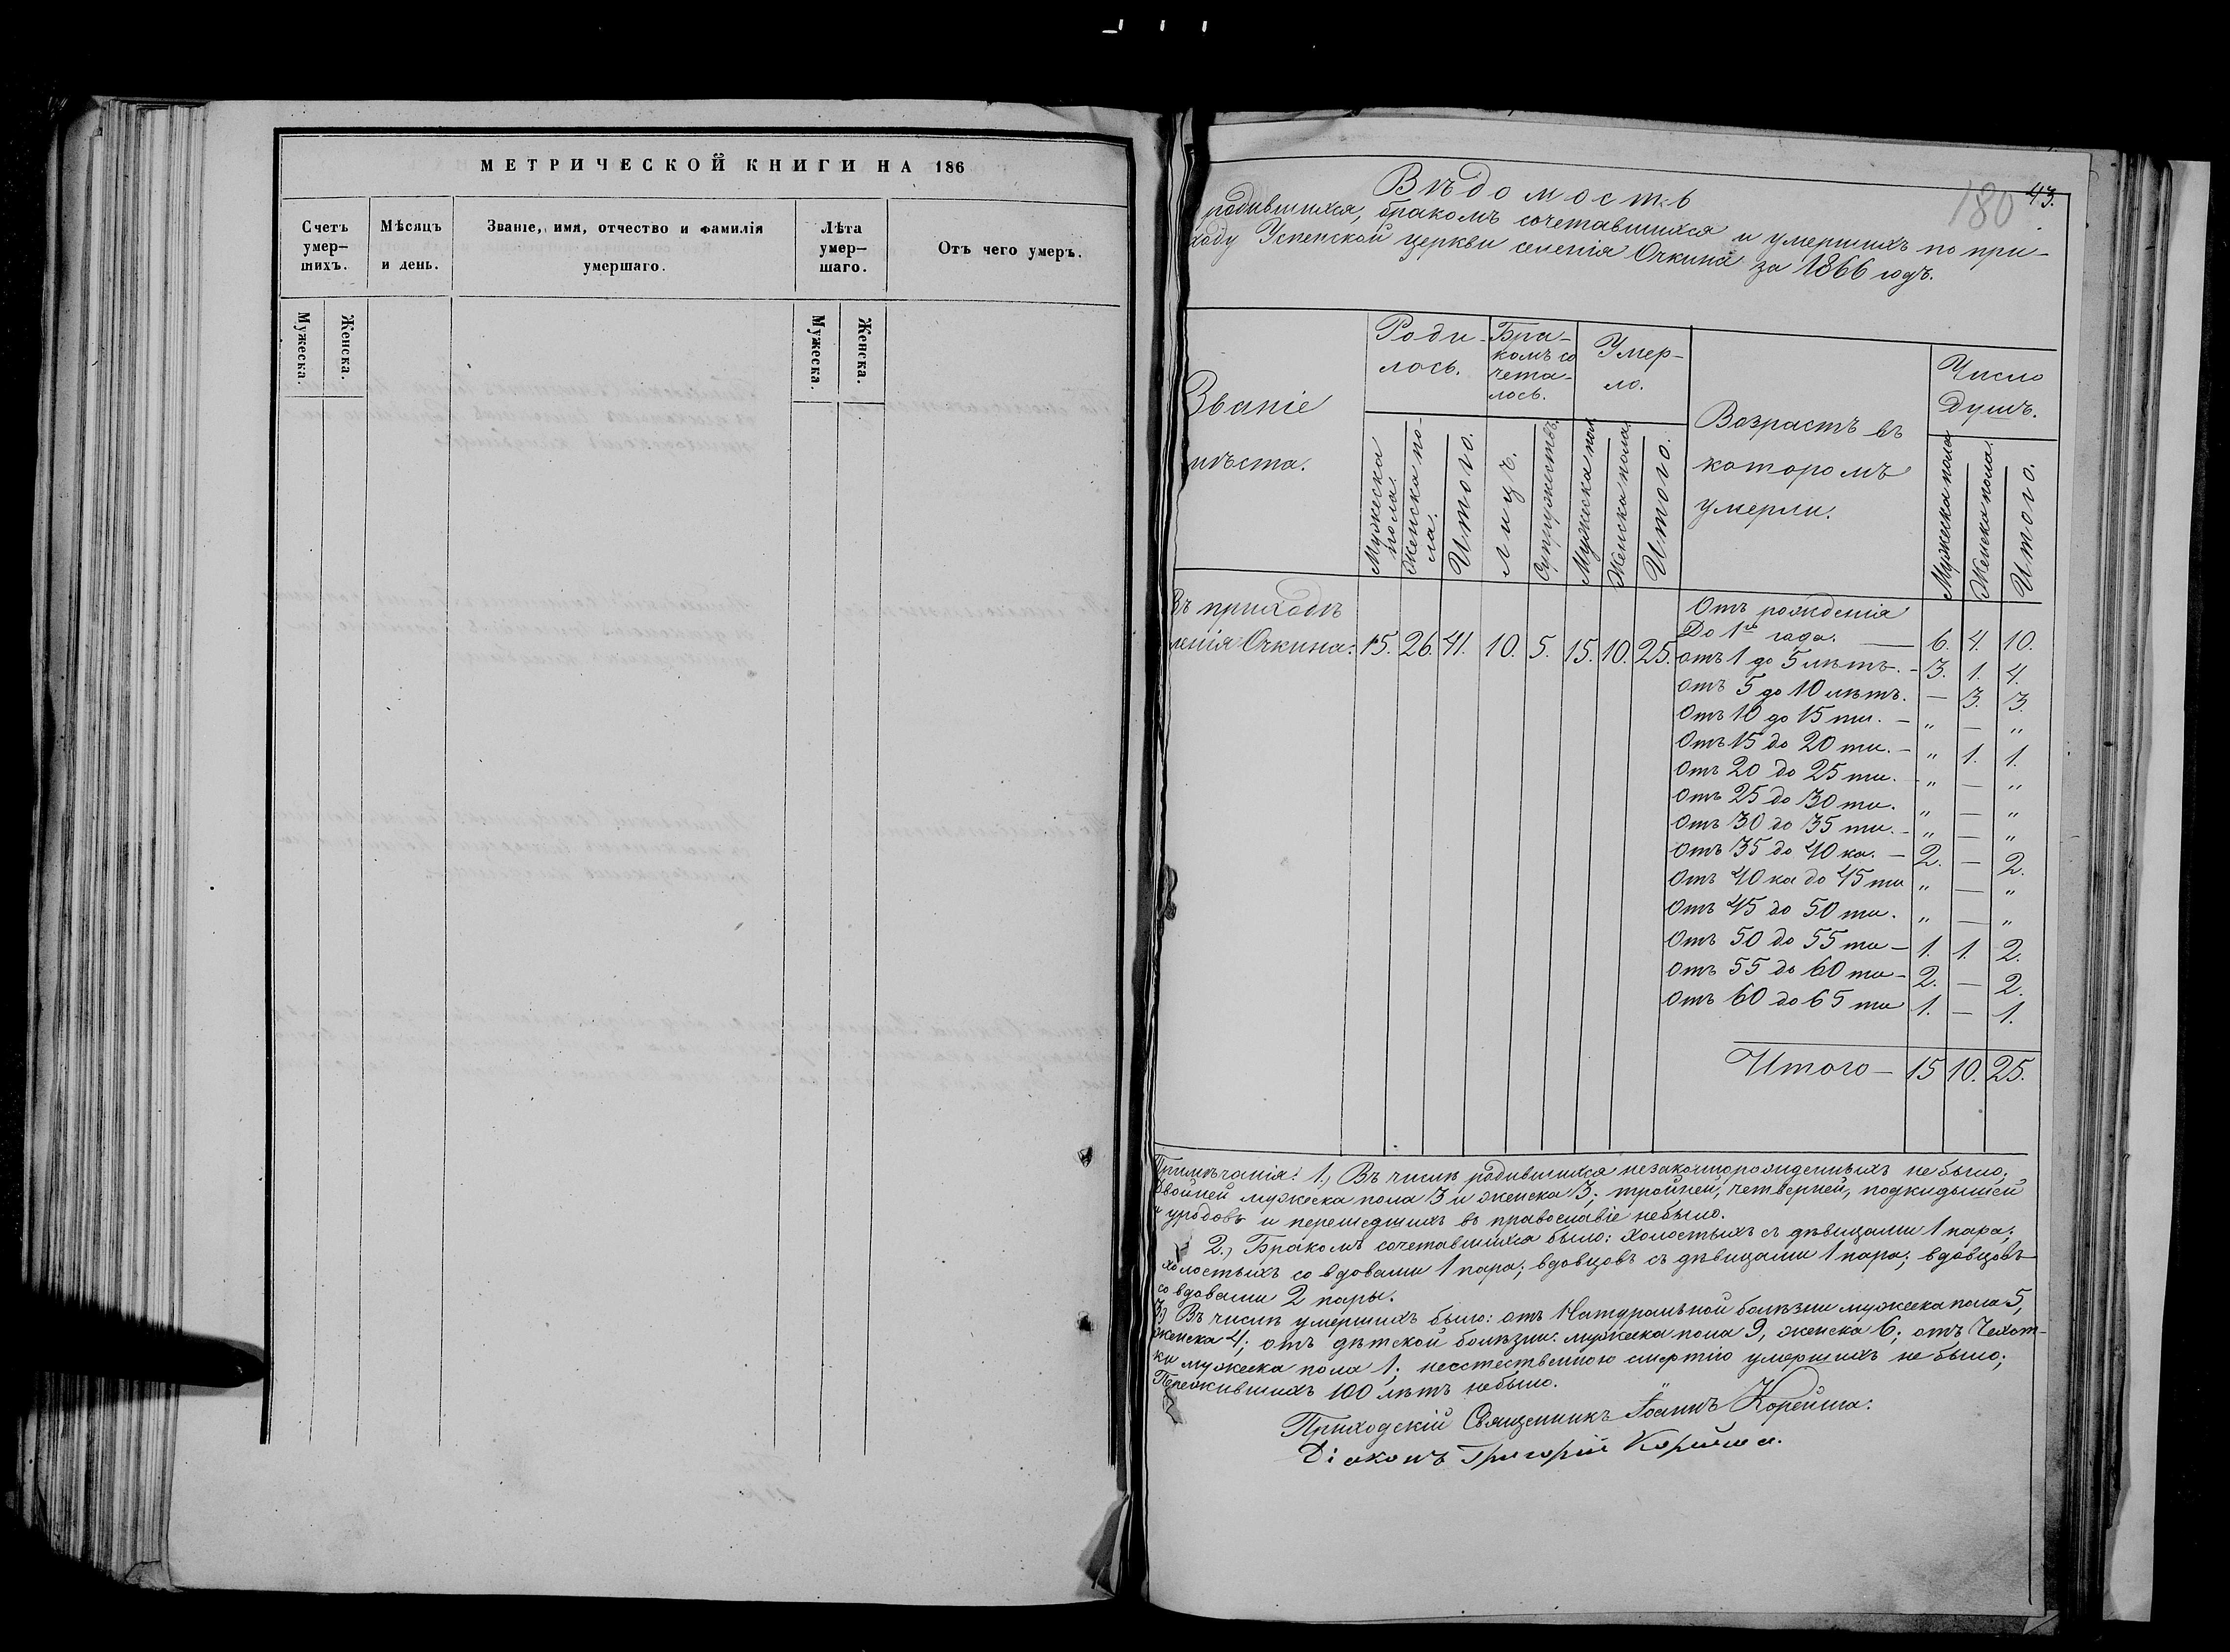 МЕТРИЧЕСКОЙ КНИГИ НА 186
Счетъ умер-шихъ.
Мѣсяцъ и день.
Званіе, имя, отчество и фамилія умершаго.
Лѣта умер-шаго.
Отъ чего умеръ.
Мужеска.
Женска.
Мужеска.
Женска.
180 43.
Вѣдомость
родившихся, бракомъ сочетавшихся и умершихъ по при-
ходу Успенской церкви селенія Очкина за 1866 годъ.
Званіе
мѣста.
Роди-
лось.
Бра-
комъ со
чета-
лось.
Умер-
ло.
Возрастъ въ
которомъ
умерли.
Число
душъ.
Мужеска пола.
Женска по-ла.
Итого.
Лицъ.
Супружествъ.
Мужеска пол
Женска пола
Итого.
Мужеска пола
Женска пола.
Итого.
Въ приходѣ
ленія Очкина: 15. 26. 41. 10. 5. 15. 10. 25.
Отъ рожденія
До 1го года. — 6. 4. 10.
отъ 1 до 5 лѣтъ. - 3. 1. 4.
отъ 5 до 10 лѣтъ. — 3. 3.
Отъ 10 до 15 ти. - „ — „
Отъ 15 до 20 ти. - „ 1. 1.
Отъ 20 до 25 ти. - „ — „
Отъ 25 до 30 ти. „ — „
Отъ 30 до 35 ти. - „ — „
Отъ 35 до 40 ка. — 2. — 2.
Отъ 40 ка до 45 ти „ — „
Отъ 45 до 50 ти. „ — „
Отъ 50 до 55 ти — 1. 1. 2.
Отъ 55 до 60 ти - 2. — 2.
Отъ 60 до 65 ти 1. — 1.
Итого — 15 10. 25.
Примѣчанія: 1.) Въ числѣ родившихся незаконнорожденныхъ не было;
Двойней мужеска пола 3 и женска 3; тройней, четверней, подкидышей
и уродовъ и перешедшихъ въ православіе небыло.
2.) Бракомъ сочетавшихся было: холостыхъ съ дѣвицами 1 пара;
холостыхъ со вдовами 1 пара; вдовцовъ съ дѣвицами 1 пара; вдовцовъ
со вдовами 2 пары.
3) Въ числѣ умершихъ было: отъ Натуральной болѣзни мужеска пола 5,
женска 4; отъ дѣтской болѣзни: мужеска пола 9, женска 6; отъ Чехот-
ки мужеска пола 1; неестественною смертію умершихъ не было;
Пережившихъ 100 лѣтъ небыло.
Приходскій Священникъ Іоаннъ Корейша.
Діаконъ Григорій Корейша.